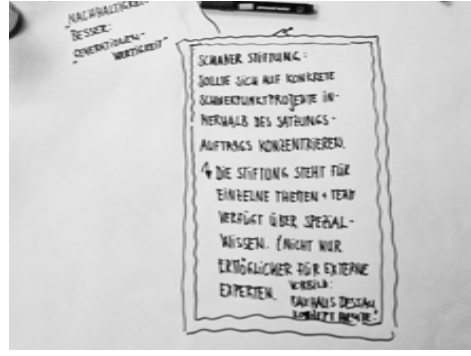 „NACHHALTIGKEIT"
BESSER:
„GENERATIONEN-
WERTIGKEIT"
SCHADER STIFTUNG:
SOLLTE SICH AUF KONKRETE
SCHWERPUNKTPROJEKTE IN-
NERHALB DES SATZUNGS-
AUFTRAGS KONZENTRIEREN.
↳ DIE STIFTUNG STEHT FÜR
EINZELNE THEMEN + TEAM
VERFÜGT ÜBER SPEZIAL-
WISSEN. (NICHT NUR
ERMÖGLICHER FÜR EXTERNE
EXPERTEN.
VORBILD:
BAUHAUS DESSAU